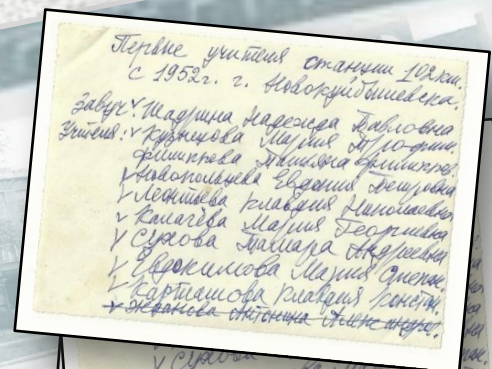 Первые учителя станции 102 км.
с 1952г. г. Новокуйбышевска.
Завуч: ✓ Шадрина Надежда Павловна
Учителя: ✓ Кузнецова Мария Трофим.
Филиппова Татьяна Филиппов.
✓ Новопольцева Евдокия Петровна
✓ Леонтьева Клавдия Николаевна
✓ Калачёва Мария Георгиевна
✓ Сухова Тамара Андреевна
✓ Евдокимова Мария Степан.
✓ Карташова Клавдия Констан.
✓ Жданова Антонина Александр.
✓ Сухова